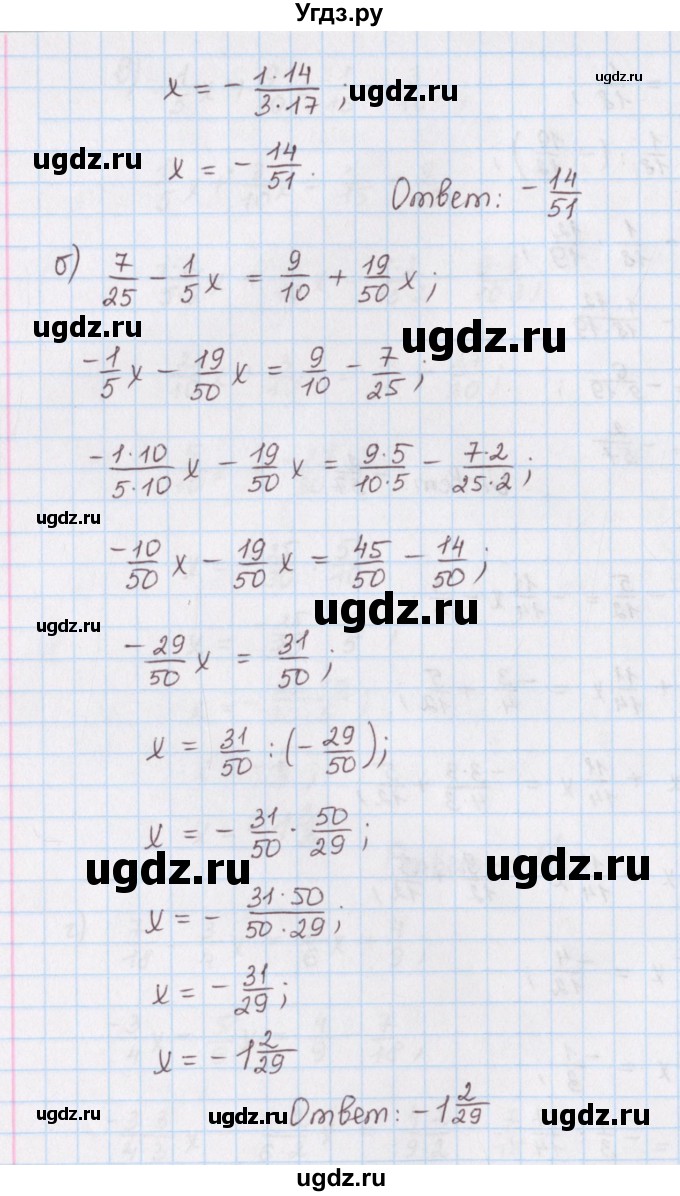 Угдз.ру
x = - 1·14/3·17 ;
ugdz.ru
ugdz.ru
ugdz.ru
x = - 14/51.
Ответ: - 14/51
б) 7/25 - 1/5 x = 9/10 + 19/50 x;
ugdz.ru
ugdz.ru
-1/5 x - 19/50 x = 9/10 - 7/25;
-1·10/5·10 x - 19/50 x = 9·5/10·5 - 7·2/25·2;
ugdz.ru
-10/50 x - 19/50 x = 45/50 - 14/50;
ugdz.ru
ugdz.ru
-29/50 x = 31/50;
x = 31/50 : (- 29/50);
x = - 31/50 · 50/29;
ugdz.ru
ugdz.ru
x = - 31·50/50·29;
x = - 31/29;
x = - 1 2/29
Ответ: - 1 2/29
ugdz.ru
ugdz.ru
ugdz.ru
ugdz.ru